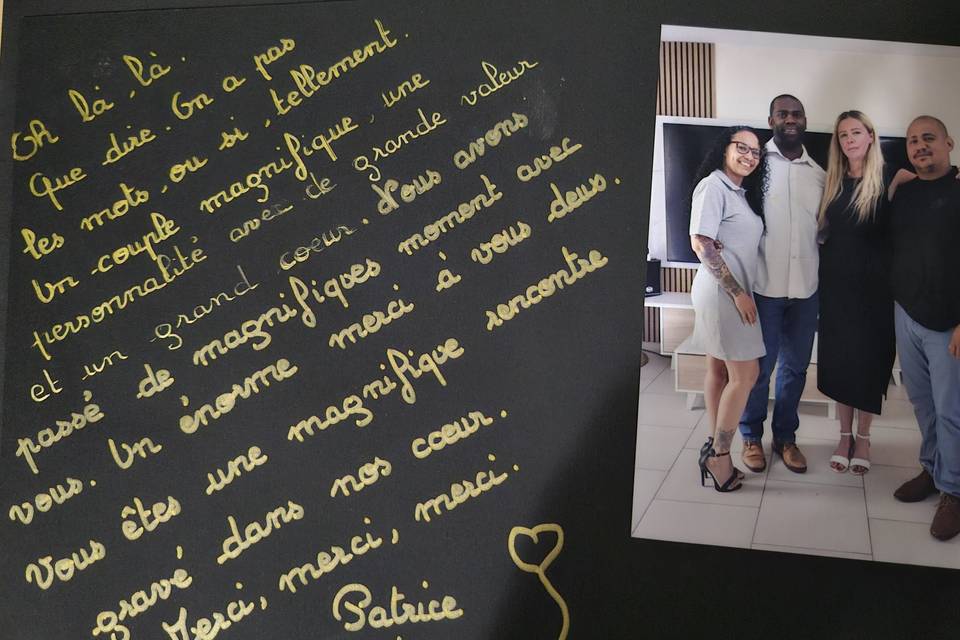 Oh là, là.
Que dire. On a pas
les mots, ou si, tellement.
Un couple magnifique, une
personnalité avec de grande valeur
et un grand coeur. Nous avons
passé de magnifiques moment avec
vous. Un énorme merci à vous deux.
Vous êtes une magnifique rencontre
gravé dans nos cœur.
Merci, merci, merci.
Patrice